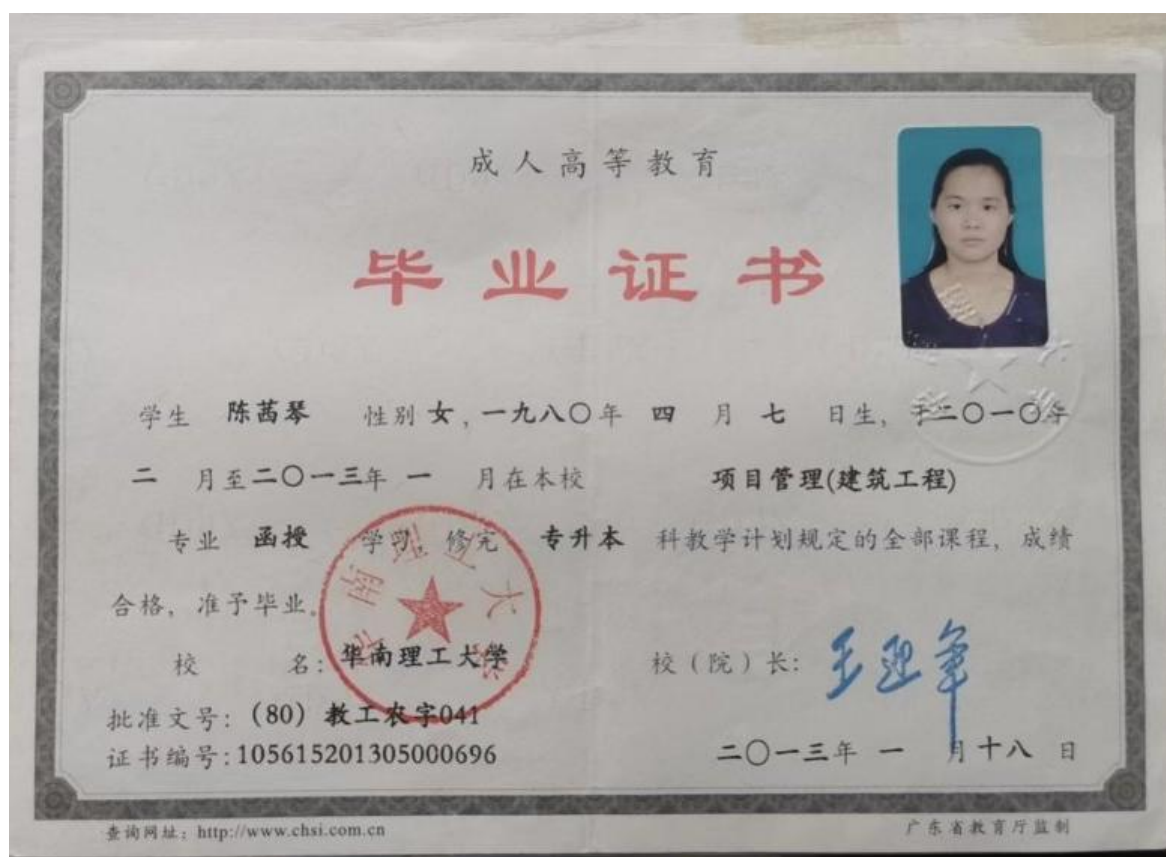 成人高等教育
毕业证书
学生 陈茜琴 性别 女，一九八〇年 四 月 七 日生，于二〇一〇年
二 月至二〇一三年 一 月在本校 项目管理(建筑工程)
专业 函授 学习，修完 专升本 科教学计划规定的全部课程，成绩
合格，准予毕业。
华南理工大学
校 名：华南理工大学
校（院）长：
批准文号：(80) 教工农字041
证书编号：105615201305000696
二〇一三年 一 月十八 日
查询网址：http://www.chsi.com.cn
广东省教育厅监制